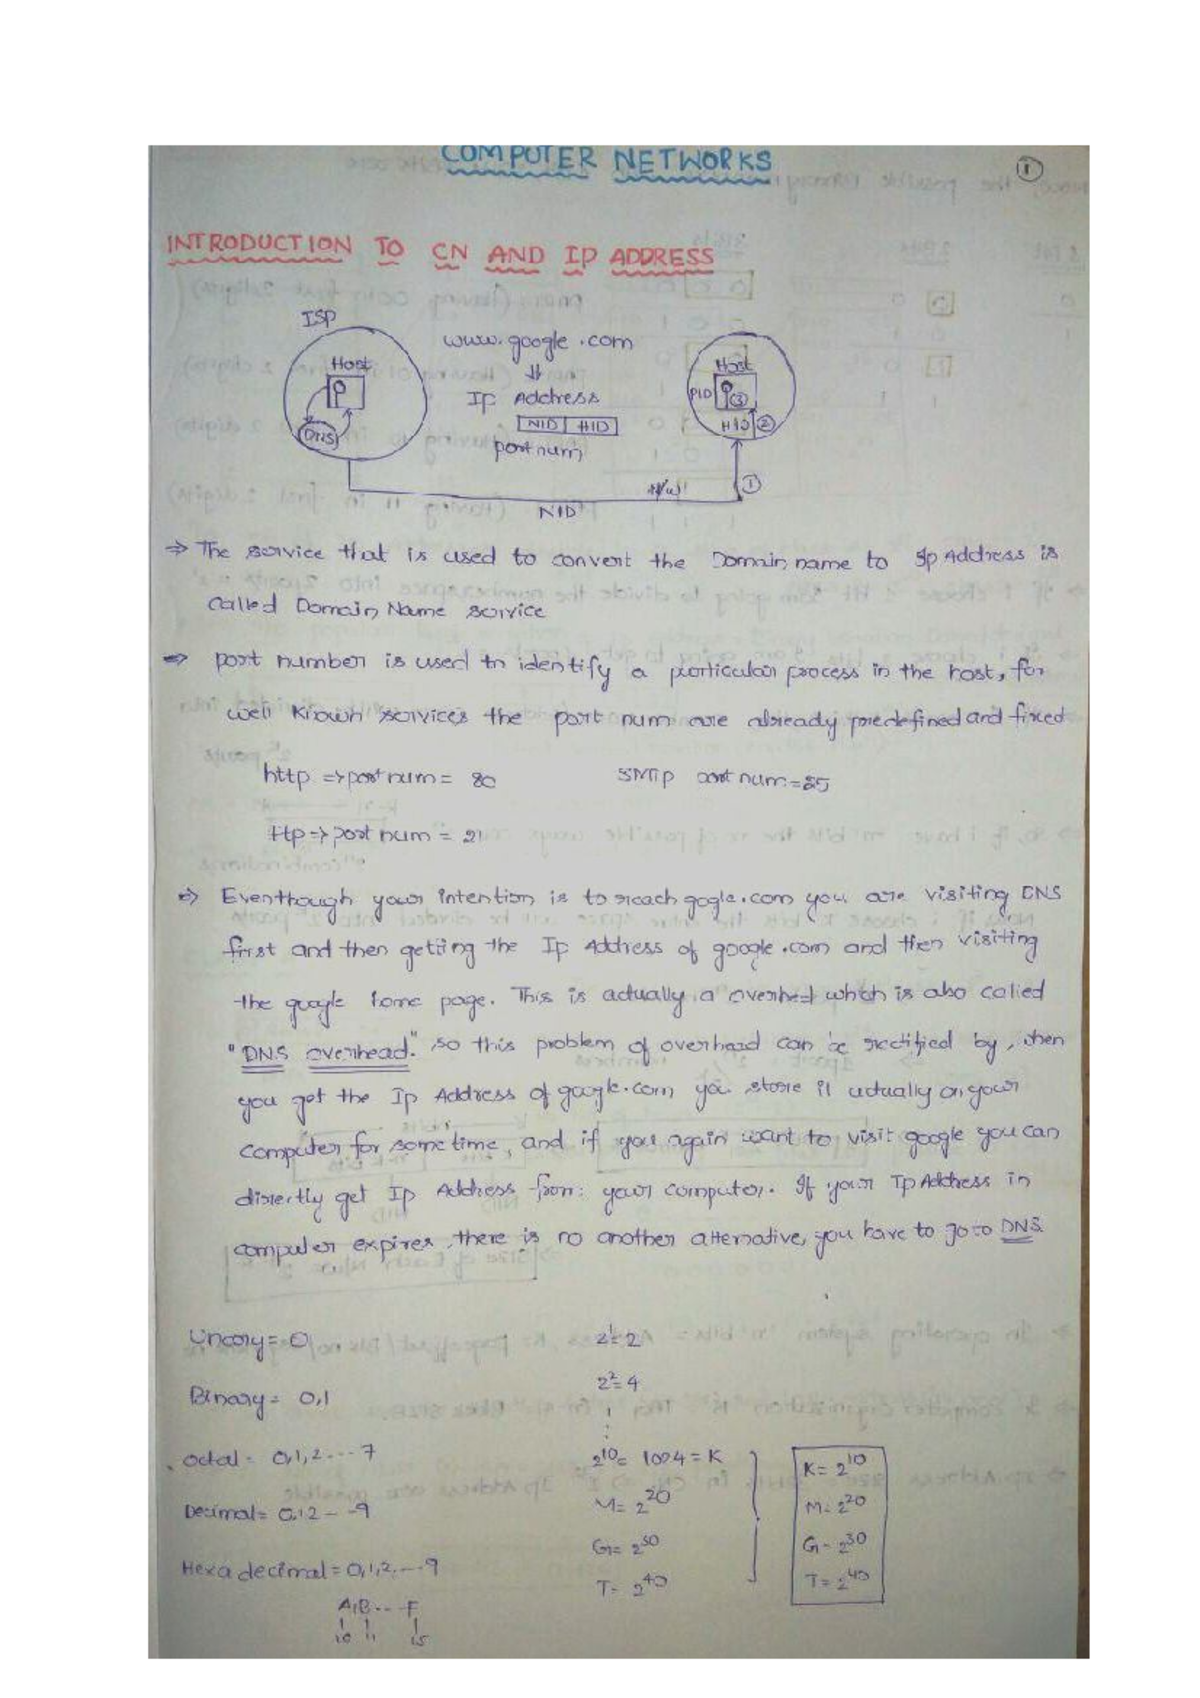 COMPUTER NETWORKS
1
INTRODUCTION TO CN AND IP ADDRESS
ISP
www.google.com
Host
Host
Ip Address
PID
3
NID HID
HID 2
DNS
port num
1
NID
⇒ The service that is used to convert the Domain name to Ip Address is
called Domain Name service
⇒ port number is used to identify a particular process in the host, for
well known services the port num are already predefined and fixed
http ⇒ port num = 80
SMTP port num = 25
ftp ⇒ port num = 21
⇒ Eventhough your intention is to reach gogle.com you are visiting DNS
first and then getting the Ip Address of google.com and then visiting
the google home page. This is actually a overhed which is also called
"DNS overhead." so this problem of overhead can be rectified by, when
you got the Ip Address of google.com you store it actually on your
computer for some time, and if you again want to visit google you can
directly get Ip Address from your computer. If your Ip Address in
computer expires there is no another alternative, you have to go to DNS
Unary = 0
2¹ = 2
Binary = 0,1
2² = 4
octal = 0,1,2---7
2¹⁰ = 1024 = K
K = 2¹⁰
Decimal = 0,1 2 -- -9
M = 2²⁰
M = 2²⁰
G = 2³⁰
G = 2³⁰
Hexa decimal = 0,1,2,---9
T = 2⁴⁰
T = 2⁴⁰
A,B... F
10 11 15